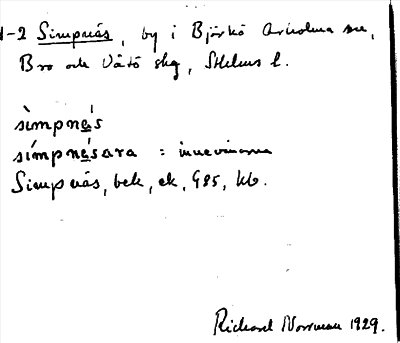 1-2 Simpnäs, by i Björkö Arholma sn,
Bro och Vätö skg, Sthlms l.
sìmpna̲s
símpna̲sara = innevånarna
Simpnäs, bek, ek, G85, kb.
Richard Norrman 1929.